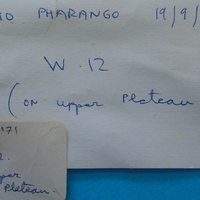 PHARANGO 19/9/
W.12
(on upper Plateau
171
2.
Plateau.